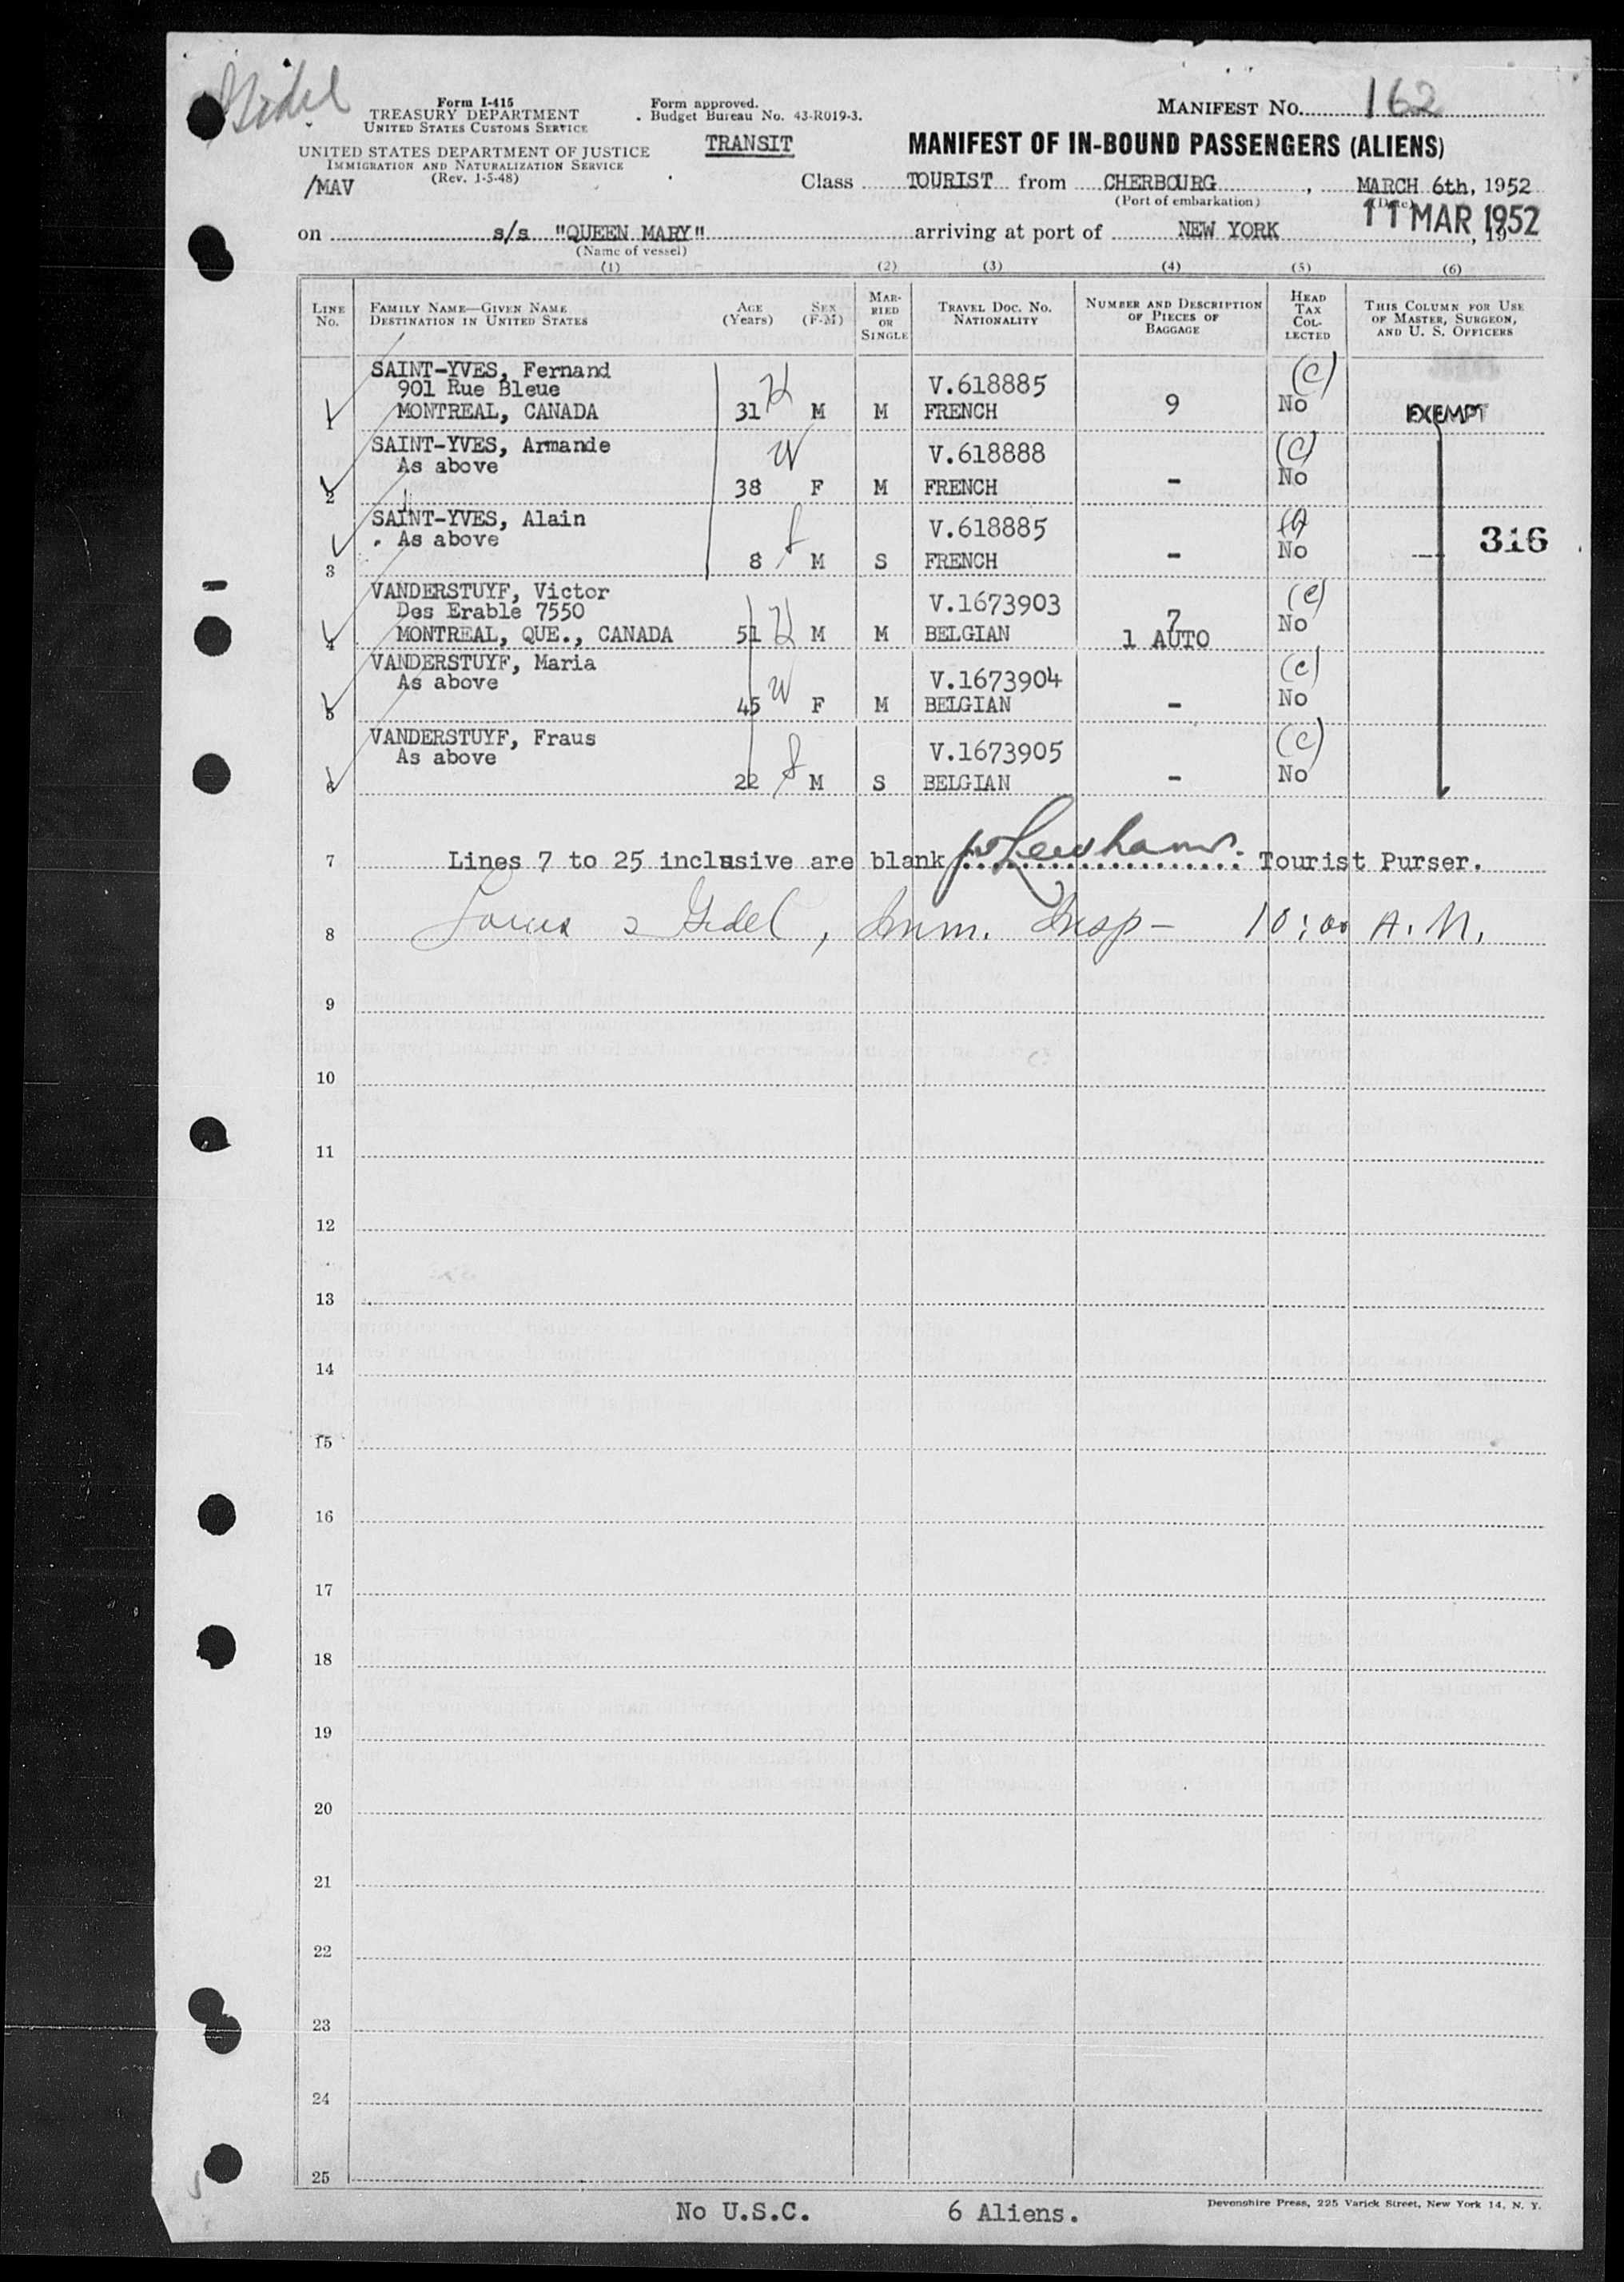 Gidel
Form I-415
TREASURY DEPARTMENT
UNITED STATES CUSTOMS SERVICE
UNITED STATES DEPARTMENT OF JUSTICE
IMMIGRATION AND NATURALIZATION SERVICE
(Rev. 1-5-48)
/MAV
Form approved.
Budget Bureau No. 43-R019-3.
TRANSIT
MANIFEST NO. 162
MANIFEST OF IN-BOUND PASSENGERS (ALIENS)
Class TOURIST from CHERBOURG, MARCH 6th, 1952
(Port of embarkation) (Date)
11 MAR 1952
on s/s "QUEEN MARY" arriving at port of NEW YORK, 19
(Name of vessel)
(1) (2) (3) (4) (5) (6)
LINE NO. FAMILY NAME—GIVEN NAME DESTINATION IN UNITED STATES AGE (Years) SEX (F-M) MARRIED OR SINGLE TRAVEL DOC. NO. NATIONALITY NUMBER AND DESCRIPTION OF PIECES OF BAGGAGE HEAD TAX COLLECTED THIS COLUMN FOR USE OF MASTER, SURGEON, AND U. S. OFFICERS
SAINT-YVES, Fernand V.618885 (C)
901 Rue Bleue H
1 MONTREAL, CANADA 31 M M FRENCH 9 No EXEMPT
SAINT-YVES, Armande W V.618888 (C)
As above
2 38 F M FRENCH - No
SAINT-YVES, Alain V.618885
As above 316
3 8 M S FRENCH - No
VANDERSTUYF, Victor V.1673903 (C)
Des Erable 7550 7
4 MONTREAL, QUE., CANADA 51 H M M BELGIAN 1 AUTO No
VANDERSTUYF, Maria V.1673904 (C)
As above W
5 45 F M BELGIAN - No
VANDERSTUYF, Fraus V.1673905 (C)
As above
6 22 M S BELGIAN - No
7 Lines 7 to 25 inclusive are blank Tourist Purser.
8 Gidel, Imm. Insp - 10:00 A.M.
9
10
11
12
13
14
15
16
17
18
19
20
21
22
23
24
25
No U.S.C. 6 Aliens.
Devonshire Press, 225 Varick Street, New York 14, N. Y.